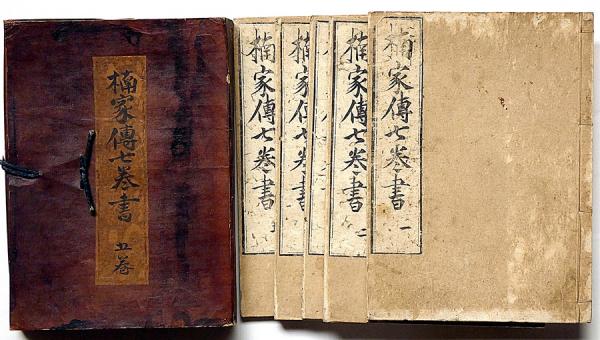 楠家傳七巻書
五巻
楠家傳七巻書
五
楠家傳七巻書
楠家傳七巻書
楠家傳七巻書
一